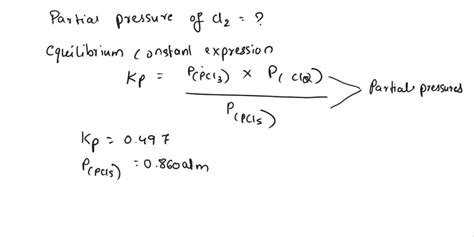 Partial pressure of Cl2 = ?
Equilibrium Constant expression
Kp = P(PCl3) × P(Cl2) / P(PCl5)
Partial pressures
Kp = 0.497
P(PCl5) = 0.860atm